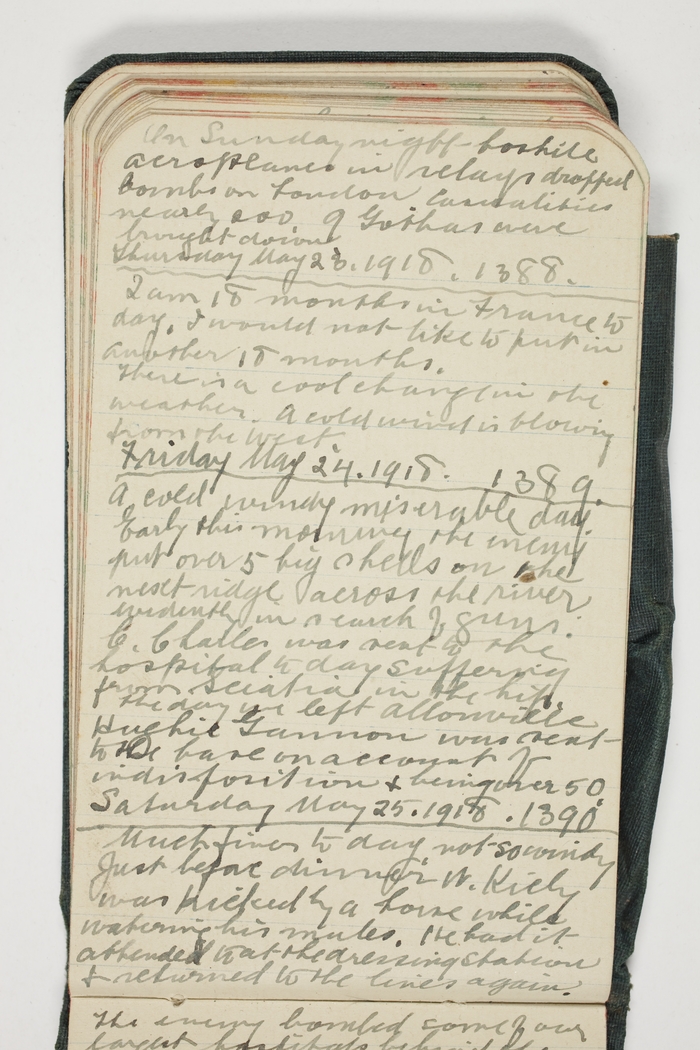 On Sunday night hostile
aeroplanes in relays dropped
bombs on London Casualities
nearly 200. 9 Gothas were
brought down
Thursday May 23. 1918. 1388.
I am 18 months in France to
day, I would not like to put in
another 18 months.
There is a cool change in the
weather. A cold wind is blowing
from the West
Friday May 24. 1918. 1389.
A cold windy miserable day.
Early this mourning the enemy
put over 5 big shells on the
next ridge across the river
evidently in search of guns.
C. Challes was sent to the
hospital to day suffering
from Sciatia in the hip.
The day we left Allonville
Hughie Gannon was sent
to the base on account of
indisposition & being over 50.
Saturday May 25. 1918. 1390
Much finer to day not so windy
Just before dinner W. Kiely
was kicked by a horse while
watering his mules. He had it
attended to at the dressing station
& returned to the lines again.
The enemy bombed some of our
largest hospitals behind the